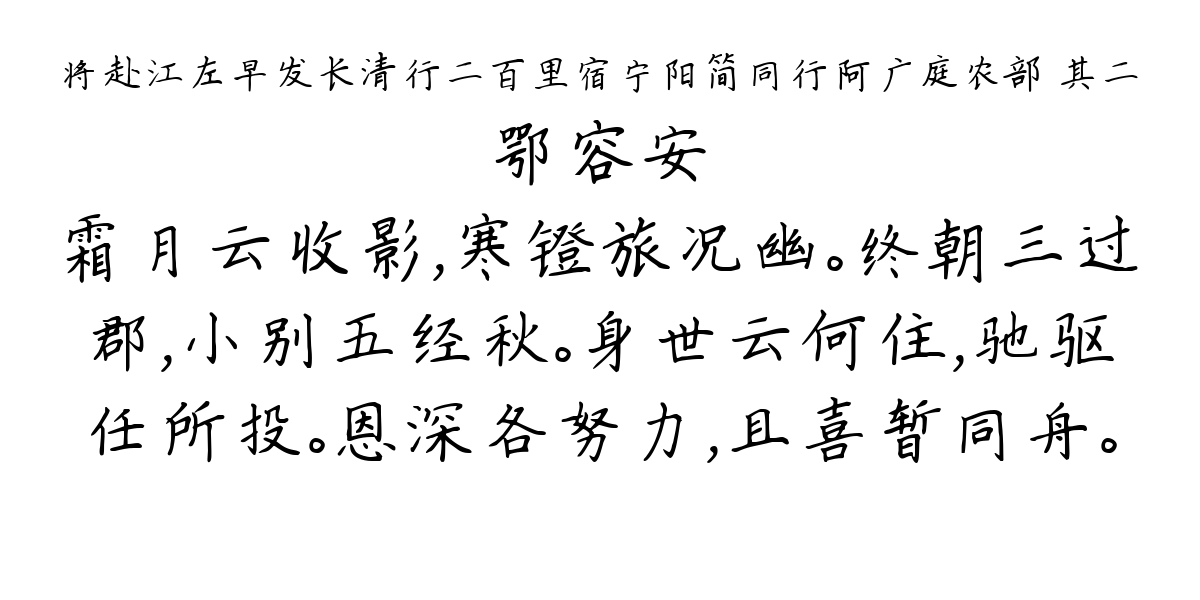 将赴江左早发长清行二百里宿宁阳简同行阿广庭农部 其二
鄂容安
霜月云收影,寒镫旅况幽。终朝三过
郡,小别五经秋。身世云何住,驰驱
任所投。恩深各努力,且喜暂同舟。